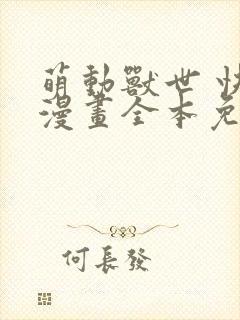 萌動獸世 快
漫畫全本免
何長發